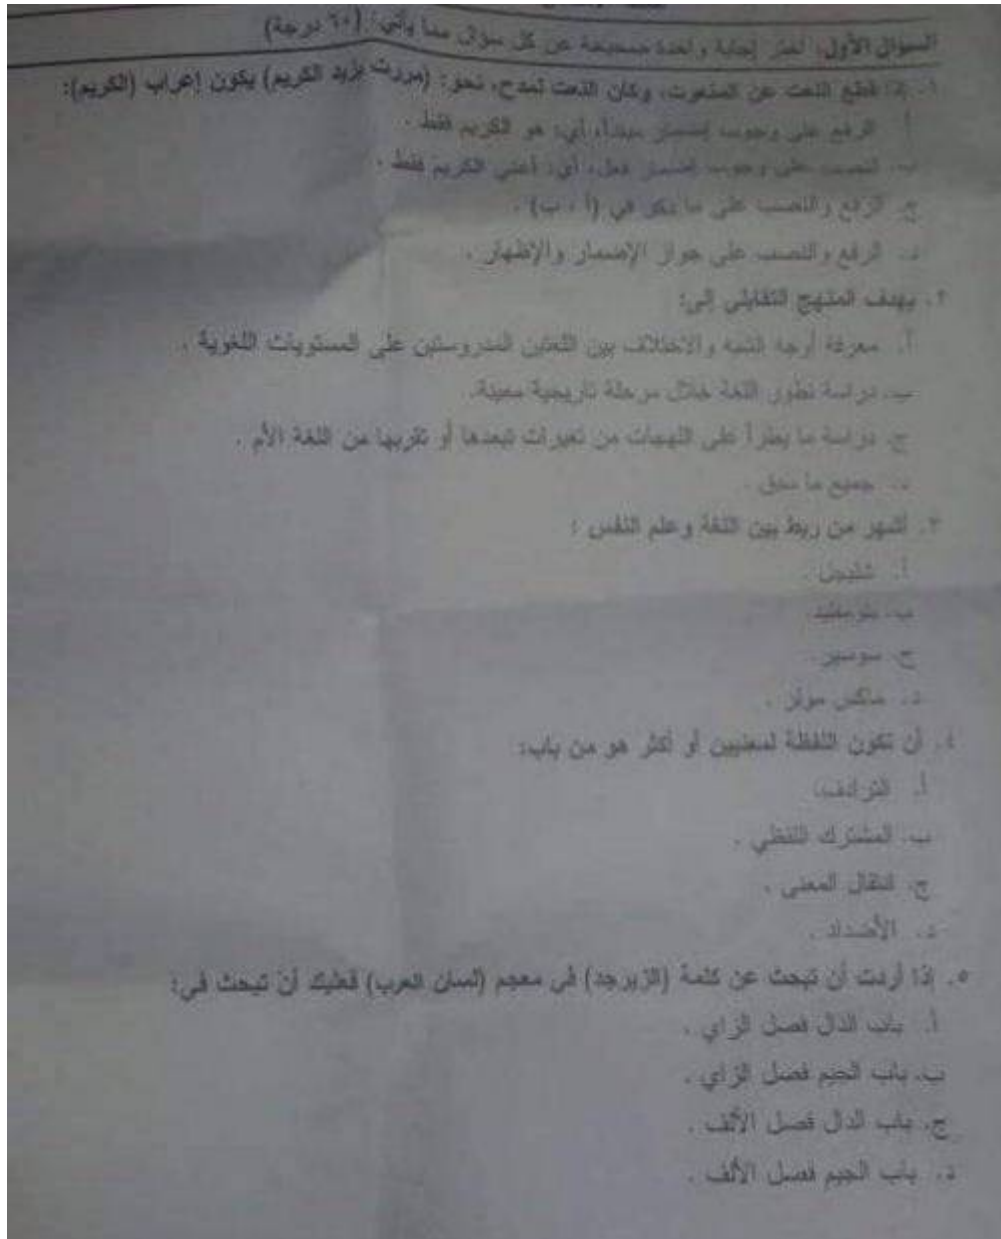 السؤال الأول: اختر إجابة واحدة صحيحة عن كل سؤال مما يأتي: (٦٠ درجة)
١. إذا قطع النعت عن المنعوت، وكان النعت لمدح، نحو: (مررت بزيد الكريم) يكون إعراب (الكريم):
أ. الرفع على وجوب إضمار مبتدأ، أي: هو الكريم فقط .
ب. النصب على وجوب إضمار فعل، أي: أعني الكريم فقط .
ج. الرفع والنصب على ما ذكر في (أ ، ب) .
د. الرفع والنصب على جواز الإضمار والإظهار .
٢. يهدف المنهج التقابلي إلى:
أ. معرفة أوجه الشبه والاختلاف بين اللغتين المدروستين على المستويات اللغوية .
ب. دراسة تطور اللغة خلال مرحلة تاريخية معينة.
ج. دراسة ما يطرأ على اللهجات من تغيرات تبعدها أو تقربها من اللغة الأم .
د. جميع ما سبق .
٣. أشهر من ربط بين اللغة وعلم النفس :
أ. شليجل .
ب. بلومفيلد
ج. سوسير.
د. ماكس مولر .
٤. أن تكون اللفظة لمعنيين أو أكثر هو من باب:
أ. الترادف.
ب. المشترك اللفظي .
ج. انتقال المعنى .
د. الأضداد .
٥. إذا أردت أن تبحث عن كلمة (الزبرجد) في معجم (لسان العرب) فعليك أن تبحث في:
أ. باب الدال فصل الزاي .
ب. باب الجيم فصل الزاي .
ج. باب الدال فصل الألف .
د. باب الجيم فصل الألف .